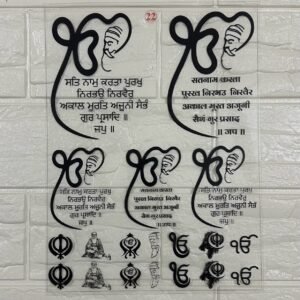 22
ਸਤਿ ਨਾਮੁ ਕਰਤਾ ਪੁਰਖੁ
ਨਿਰਭਉ ਨਿਰਵੈਰੁ
ਅਕਾਲ ਮੂਰਤਿ ਅਜੂਨੀ ਸੈਭੰ
ਗੁਰ ਪ੍ਰਸਾਦਿ ॥
ਜਪੁ ॥
सतनाम करता
पुरख निरभउ निरवैर
अकाल मूरत अजूनी
सैभं गुर प्रसाद
॥ जप ॥
ਸਤਿ ਨਾਮੁ ਕਰਤਾ ਪੁਰਖੁ
ਨਿਰਭਉ ਨਿਰਵੈਰੁ
ਅਕਾਲ ਮੂਰਤਿ ਅਜੂਨੀ ਸੈਭੰ
ਗੁਰ ਪ੍ਰਸਾਦਿ ॥
ਜਪੁ ॥
सतनाम करता
पुरख निरभउ निरवैर
अकाल मूरत अजूनी
सैभं गुर प्रसाद
॥ जप ॥
ਸਤਿ ਨਾਮੁ ਕਰਤਾ ਪੁਰਖੁ
ਨਿਰਭਉ ਨਿਰਵੈਰੁ
ਅਕਾਲ ਮੂਰਤਿ ਅਜੂਨੀ ਸੈਭੰ
ਗੁਰ ਪ੍ਰਸਾਦਿ ॥
ਜਪੁ ॥
ੴ ੴ
ੴ ੴ